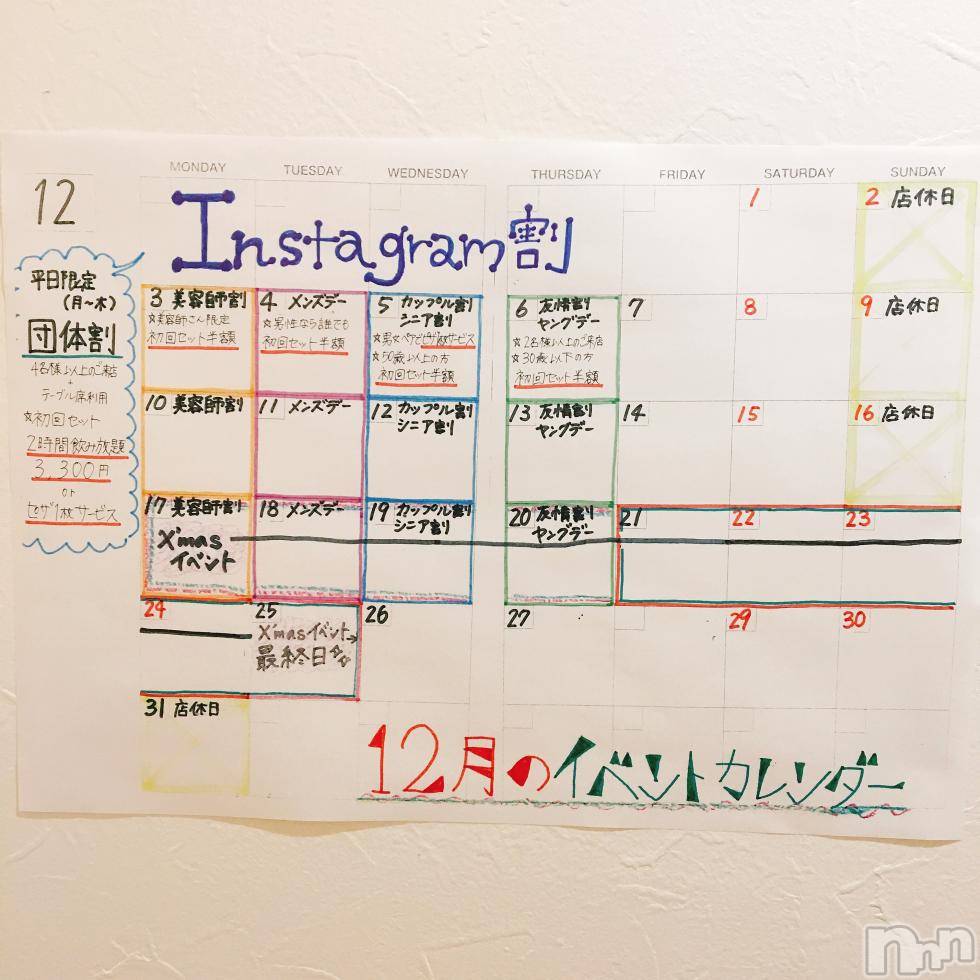 12
MONDAY TUESDAY WEDNESDAY THURSDAY FRIDAY SATURDAY SUNDAY
Instagram割
1
2 店休日
平日限定
(月~木)
団体割
4名様以上のご来店
+
テーブル席利用
☆初回セット
2時間飲み放題
3,300円
or
ピザ1枚サービス
3 美容師割
☆美容師さん限定
初回セット半額
4 メンズデー
☆男性なら誰でも
初回セット半額
5 カップル割
シニア割
☆男女ペアでピザ1枚サービス
☆50歳以上の方
初回セット半額
6 友情割
ヤングデー
☆2名様以上のご来店
☆30歳以下の方
初回セット半額
7
8
9 店休日
10 美容師割
11 メンズデー
12 カップル割
シニア割
13 友情割
ヤングデー
14
15
16 店休日
17 美容師割
X'mas
イベント
18 メンズデー
19 カップル割
シニア割
20 友情割
ヤングデー
21
22
23
24
25
X'masイベント
最終日☆☆
26
27
29
30
31 店休日
12月のイベントカレンダー
nnn